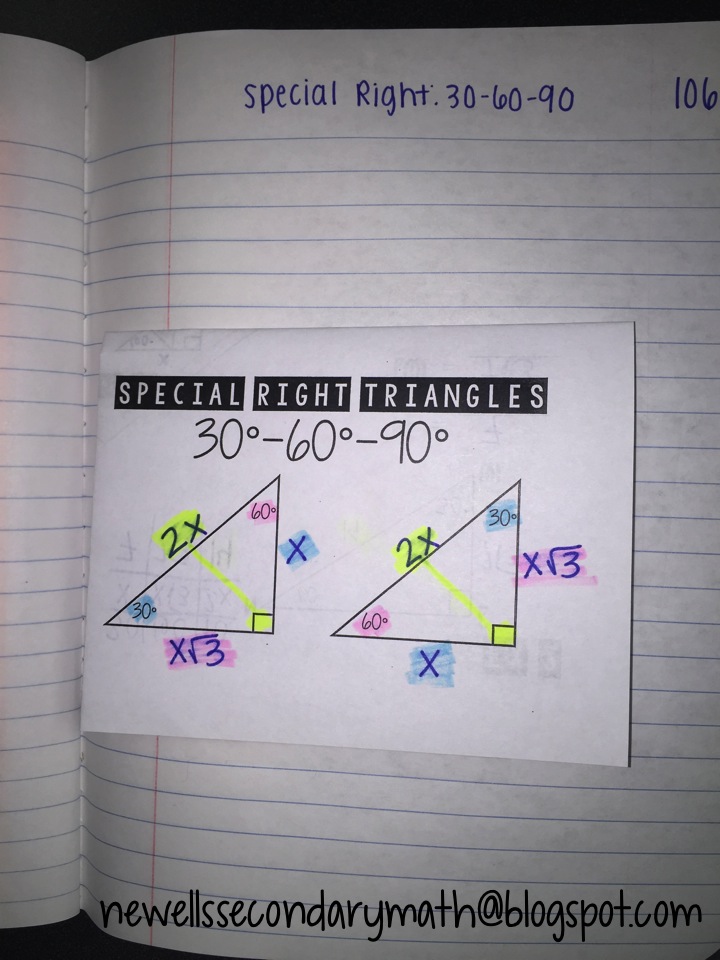 special Right: 30-60-90 106
SPECIAL RIGHT TRIANGLES
30°-60°-90°
60°
2x
x
30°
x√3
30°
2x
x√3
60°
x
newellssecondarymath@blogspot.com